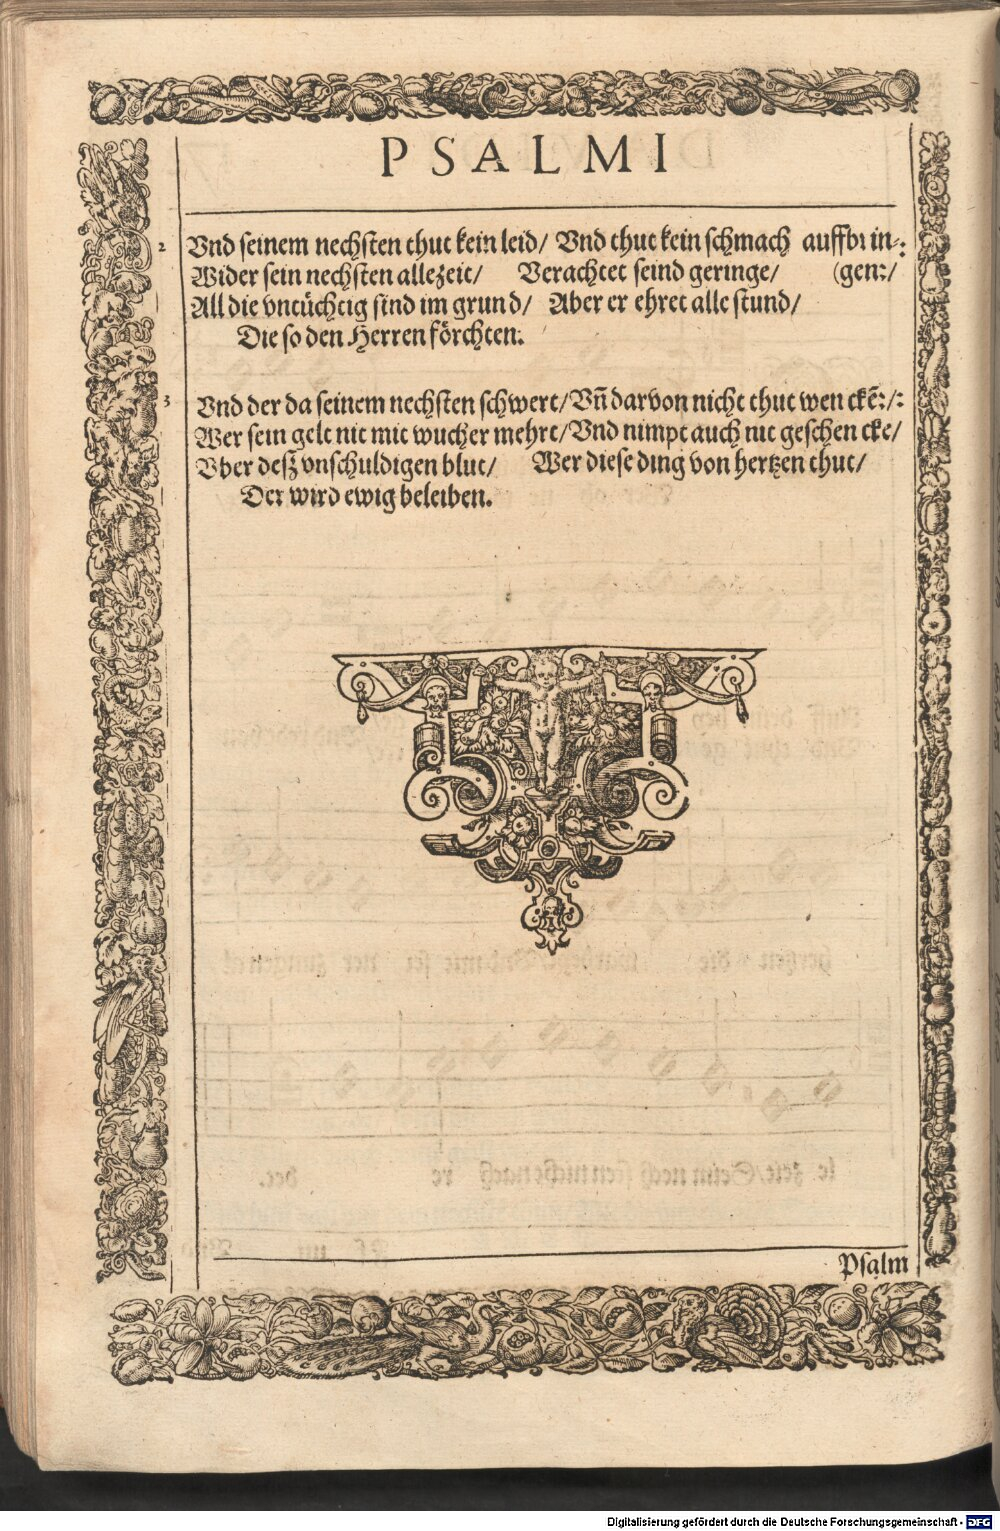 PSALMI
2 Vnd seinem nechsten thut kein leid/ Vnd thut kein schmach auffbrin-:
Wider sein nechsten allezeit/ Verachtet seind geringe/ (gen:/
All die vntüchtig sind im grund/ Aber er ehret alle stund/
Die so den Herren förchten.
3 Vnd der da seinem nechsten schwert/ Vñ darvon nicht thut wenckẽ:/:
Wer sein gelt nit mit wucher mehrt/ Vnd nimpt auch nit geschencke/
Vber desz vnschuldigen blut/ Wer diese ding von hertzen thut/
Der wird ewig beleiben.
Psalm
Digitalisierung gefördert durch die Deutsche Forschungsgemeinschaft - DFG